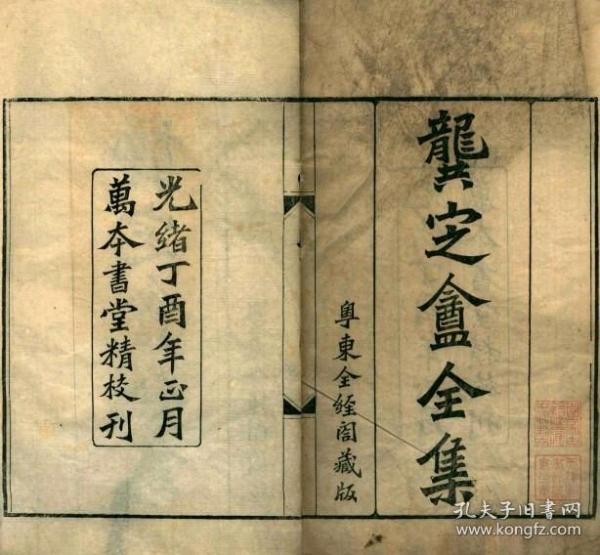 龔定盦全集
粵東全經閣藏版
光緒丁酉年正月
萬本書堂精校刊
孔夫子旧書网
www.kongfz.com